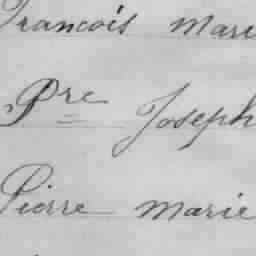 Francois Marie
Pre Joseph
Pierre Marie